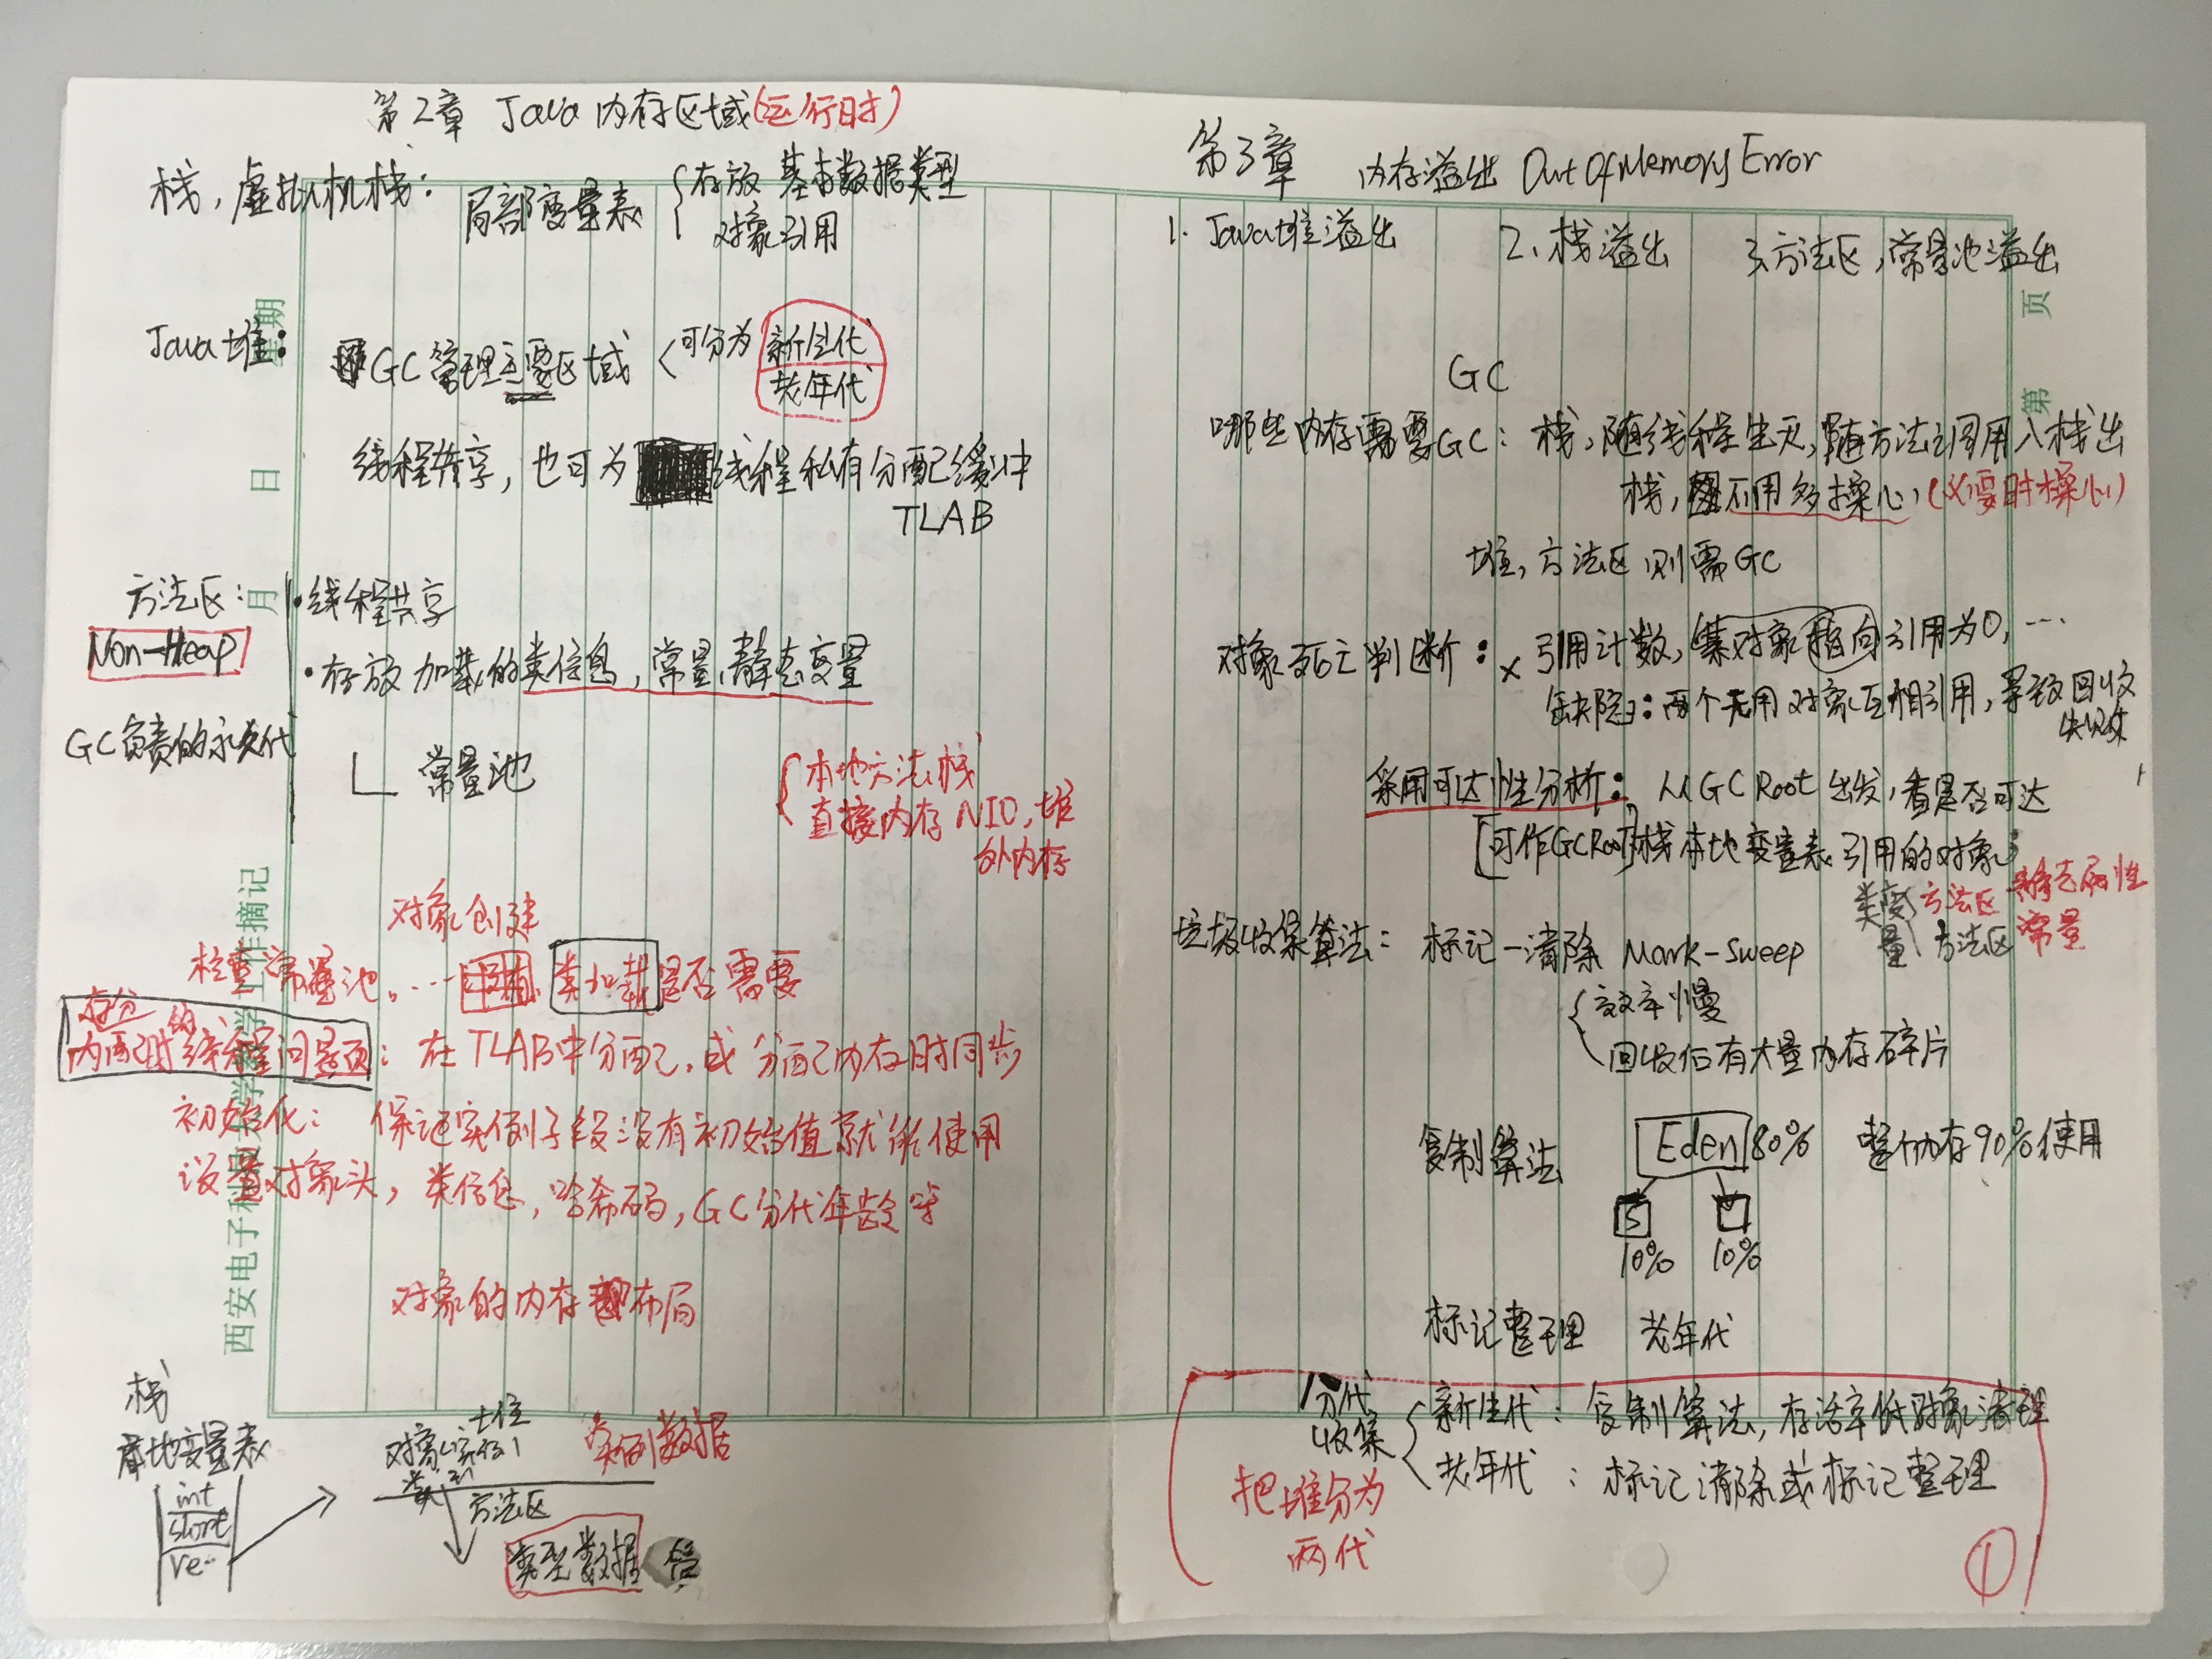 第2章 Java 内存区域(运行时)
栈,虚拟机栈:
局部变量表
存放 基本数据类型
对象引用
Java堆:
GC管理主要区域
可分为
新生代
老年代
线程共享,也可为 线程私有分配缓冲
TLAB
方法区:
Non-Heap
GC负责的永久代
·线程共享
·存放加载的类信息,常量,静态变量
常量池
本地方法栈
直接内存 NIO,堆
外内存
对象创建
检查常量池,… 类加载是否需要
内存分配时的线程问题: 在TLAB中分配,或 分配内存时同步
初始化: 保证实例字段没有初始值就能使用
设置对象头,类信息,哈希码,GC分代年龄等
对象的内存布局
栈
本地变量表
int
short
re..
堆
对象实例
类型
实例数据
方法区
类型数据
星期
日
月
西安电子科技大学学习工作摘记
第3章 内存溢出 OutOfMemory Error
1. Java堆溢出 2.栈溢出 3.方法区,常量池溢出
第 页
GC
哪些内存需要GC: 栈,随线程生灭,随方法调用入栈出
栈,不用多操心,(必要时操心)
堆,方法区 则需GC
对象死亡判断: × 引用计数,某对象指向引用为0,…
缺陷:两个无用对象互相引用,导致回收
失败
采用可达性分析: 从GC Root出发,看是否可达
[可作GCRoot]栈本地变量表引用的对象;
类变量
方法区 静态属性
方法区 常量
垃圾收集算法: 标记-清除 Mark-Sweep
效率慢
回收后有大量内存碎片
复制算法 Eden 80% 整个内存90%使用
S
10% 10%
标记整理 老年代
分代
收集
新生代: 复制算法,存活率低对象清理
老年代: 标记清除或标记整理
把堆分为
两代
①